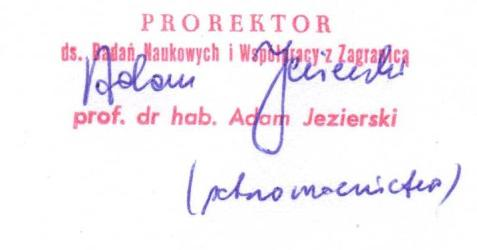 PROREKTOR
ds. Badań Naukowych i Współpracy z Zagranicą
Adam Jezierski
prof. dr hab. Adam Jezierski
(pełnomocnictwo)